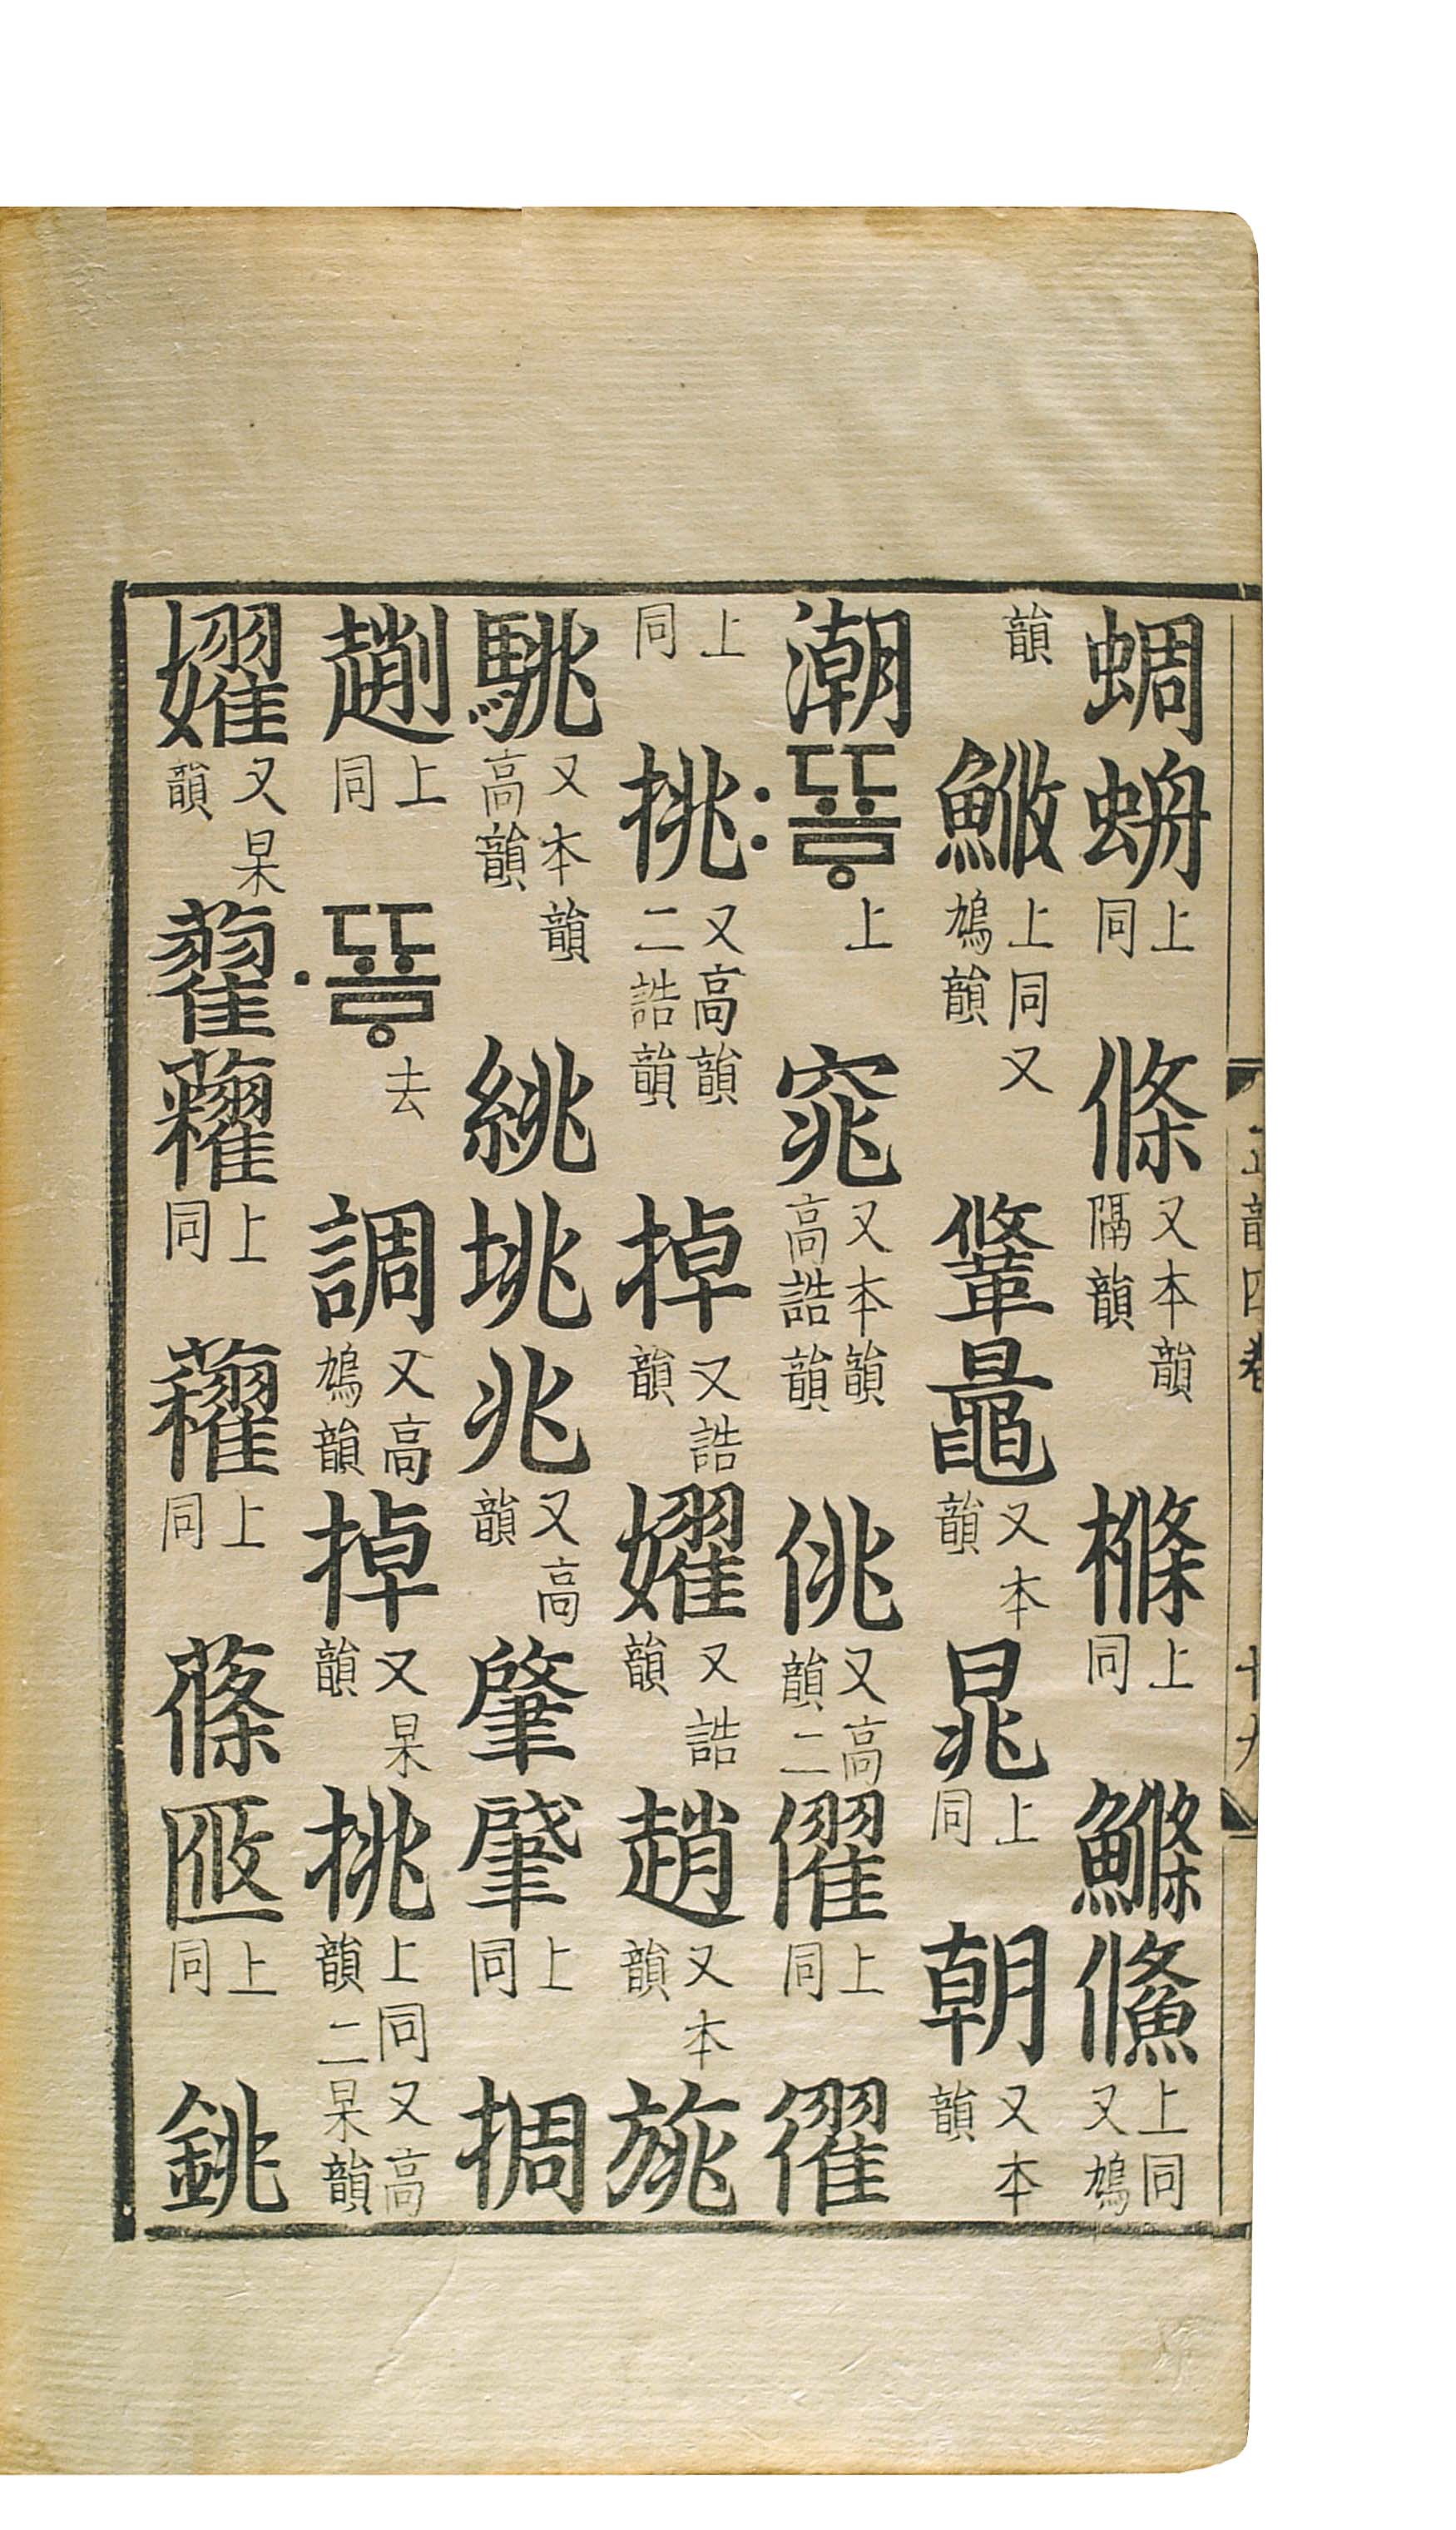 蜩 上同 條 又本韻隔韻 樤 上同 鰷鯈 上同又鳩
韻 上同又鳩韻 鞗鼂 又本韻 晁 上同 朝 又本韻
潮 〯뚀ᇢ 上 窕 又本韻高誥韻 佻 又高韻二 上同
上同 挑 又高韻二誥韻 掉 又誥韻 嬥 又誥韻 趙 又本韻 旐
駣 又本韻高韻 絩垗兆 又高韻 肇肈 上同
上同 〮뚀ᇢ 去 調 又高鳩韻 掉 又杲韻 挑 上同又高韻二杲韻
嬥 又杲韻 藋 上同 上同 蓧 上同 銚